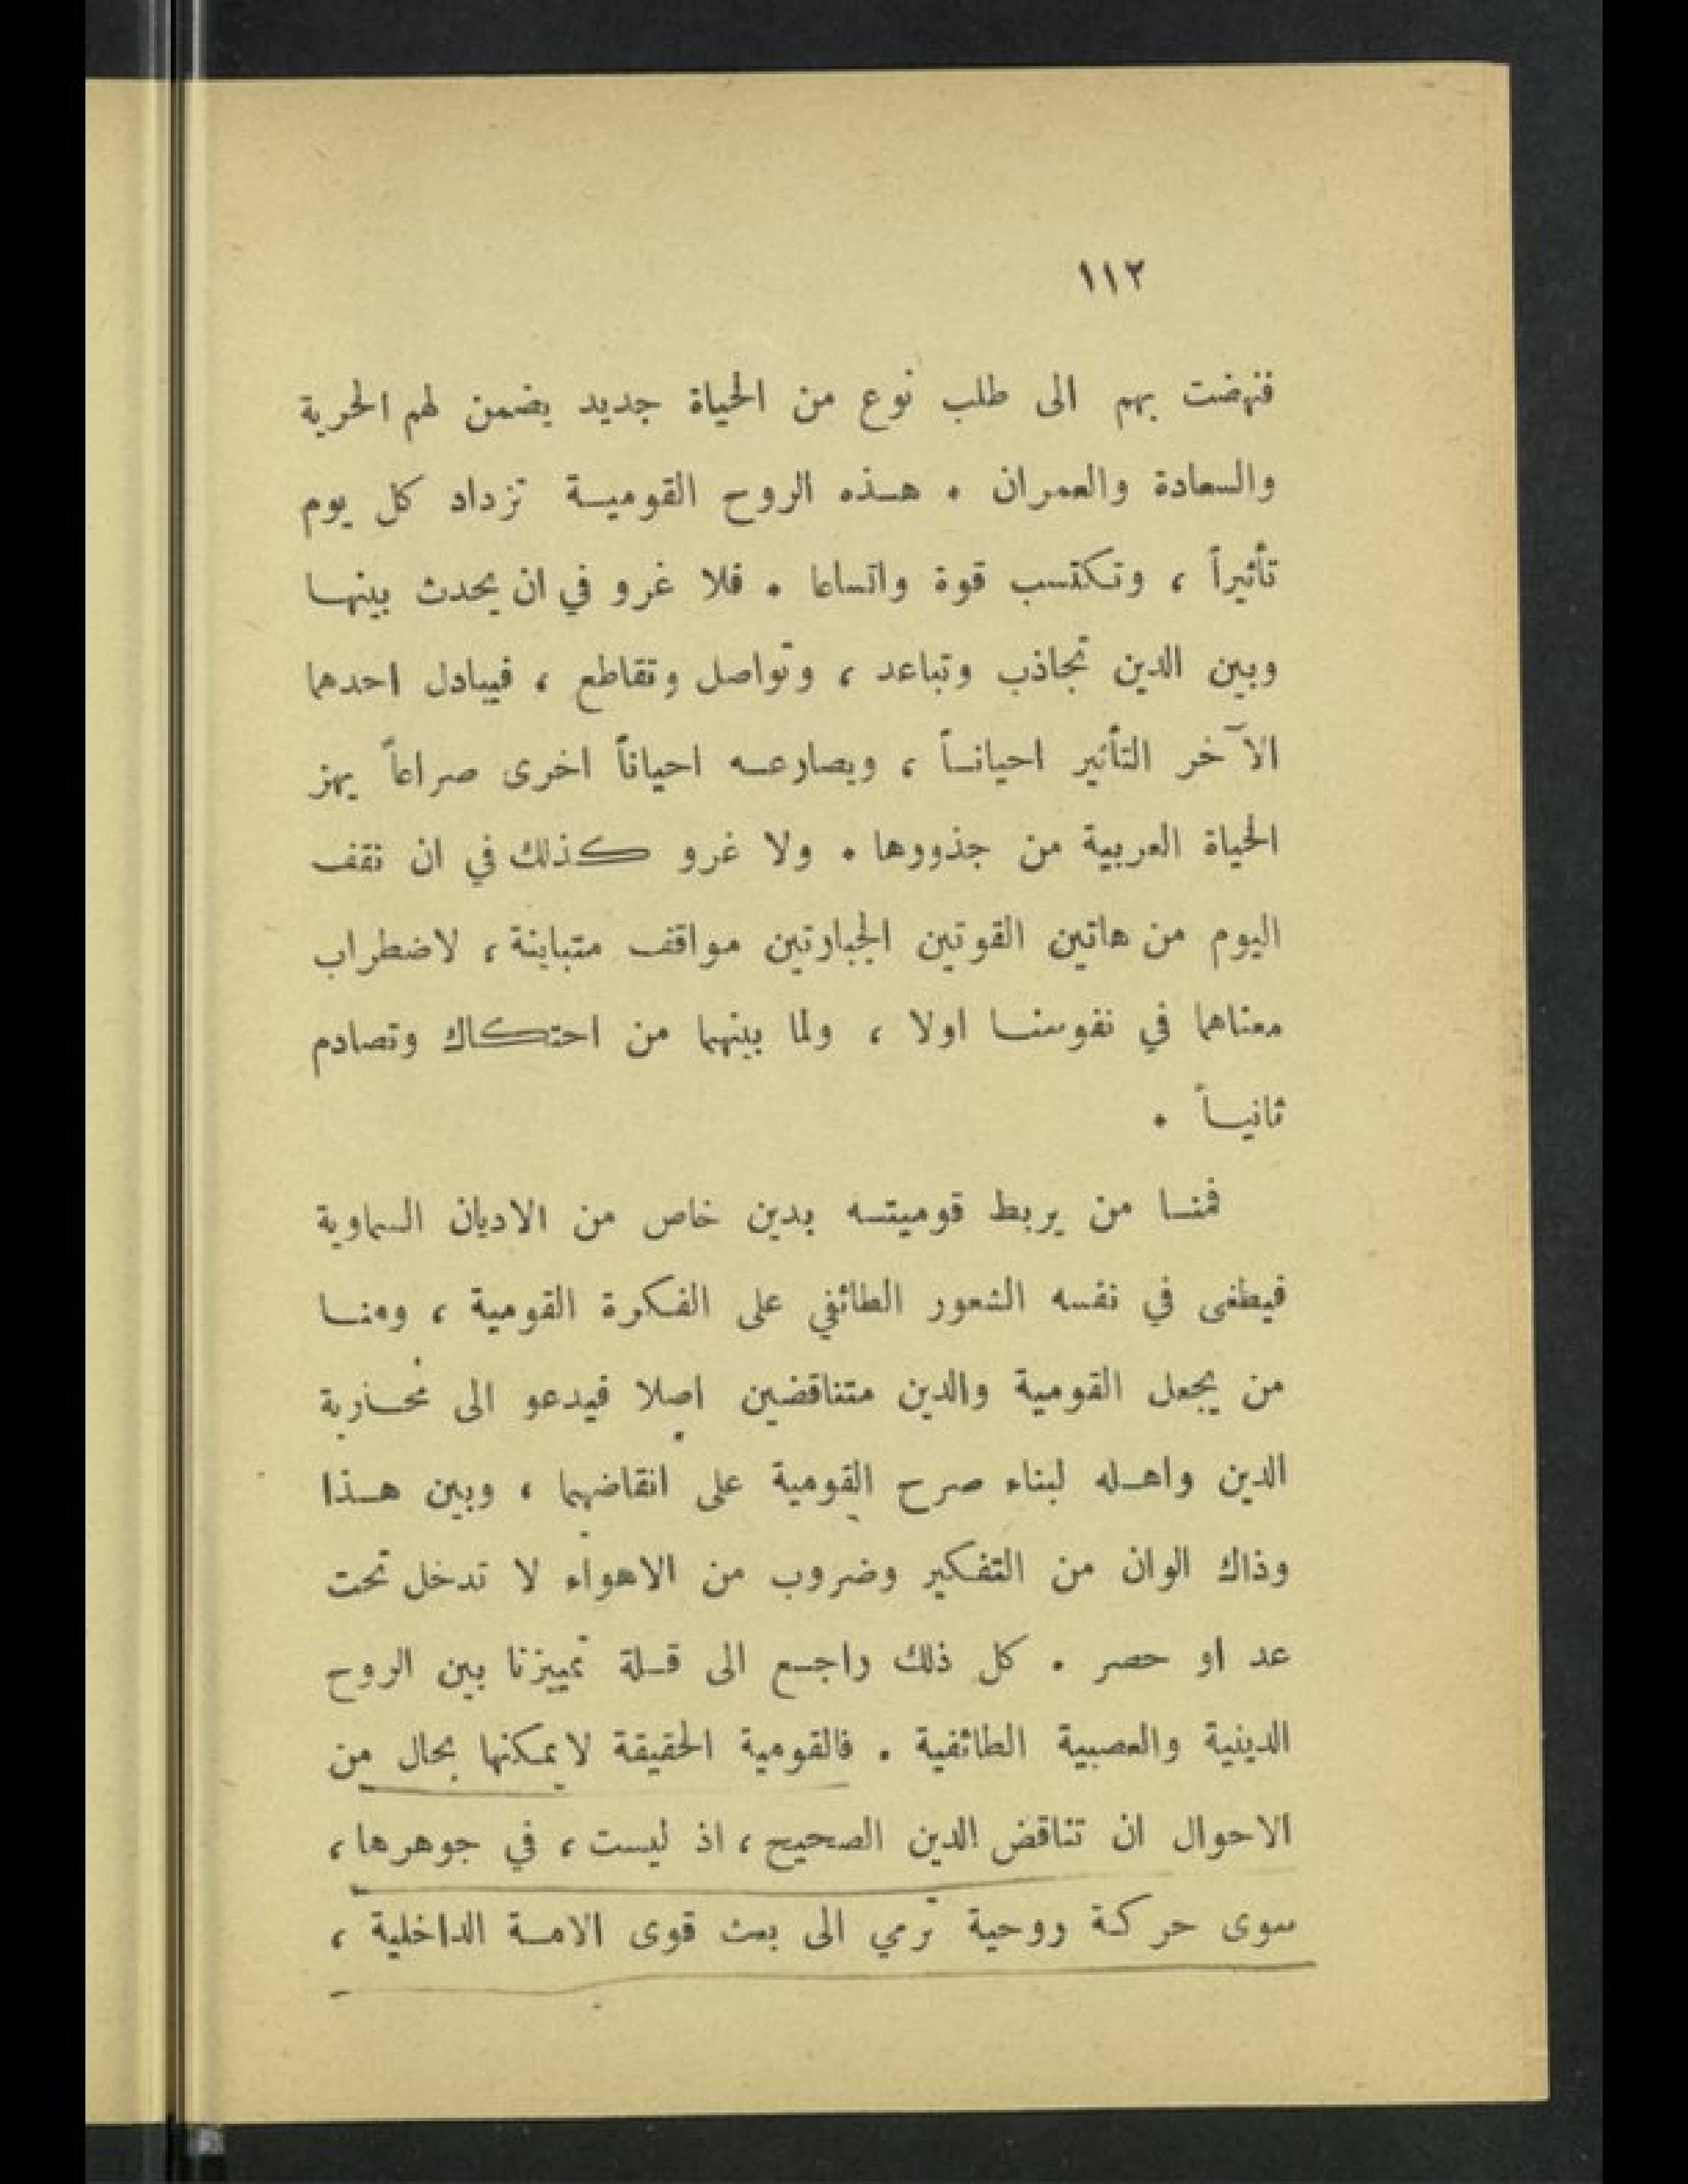 ١١٢
فنهضت بهم الى طلب نوع من الحياة جديد يضمن لهم الحرية
والسعادة والعمران . هذه الروح القومية تزداد كل يوم
تأثيراً ، وتكتسب قوة واتساعا . فلا غرو في ان يحدث بينها
وبين الدين تجاذب وتباعد ، وتواصل وتقاطع ، فيبادل احدهما
الآخر التأثير احياناً ، ويصارعه احياناً اخرى صراعاً يهز
الحياة العربية من جذورها . ولا غرو كذلك في ان نقف
اليوم من هاتين القوتين الجبارتين مواقف متباينة ، لاضطراب
معناهما في نفوسنا اولا ، ولما بينهما من احتكاك وتصادم
ثانياً .
فمنا من يربط قوميته بدين خاص من الاديان السماوية
فيطغى في نفسه الشعور الطائفي على الفكرة القومية ، ومنا
من يجعل القومية والدين متناقضين اصلا فيدعو الى محاربة
الدين واهله لبناء صرح القومية على انقاضهما ، وبين هذا
وذاك الوان من التفكير وضروب من الاهواء لا تدخل تحت
عد او حصر . كل ذلك راجع الى قلة تمييزنا بين الروح
الدينية والعصبية الطائفية . فالقومية الحقيقة لا يمكنها بحال من
الاحوال ان تناقض الدين الصحيح ، اذ ليست ، في جوهرها ،
سوى حركة روحية ترمي الى بعث قوى الامة الداخلية ،